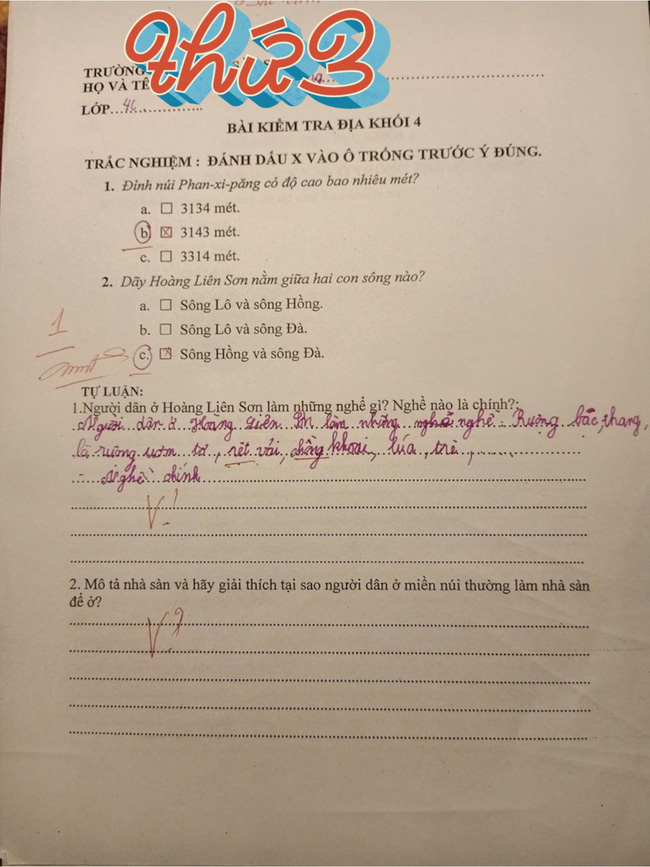 thứ 3
TRƯỜNG
HỌ VÀ TÊ
LỚP
BÀI KIỂM TRA ĐỊA KHỐI 4
TRẮC NGHIỆM : ĐÁNH DẤU X VÀO Ô TRỐNG TRƯỚC Ý ĐÚNG.
1. Đỉnh núi Phan-xi-păng có độ cao bao nhiêu mét?
a. ☐ 3134 mét.
b. ☒ 3143 mét.
c. ☐ 3314 mét.
2. Dãy Hoàng Liên Sơn nằm giữa hai con sông nào?
a. ☐ Sông Lô và sông Hồng.
b. ☐ Sông Lô và sông Đà.
1
c. ☒ Sông Hồng và sông Đà.
TỰ LUẬN:
1.Người dân ở Hoàng Liên Sơn làm những nghề gì? Nghề nào là chính?:
Người dân ở Hoang Liên Sơn làm những nghề : Ruộng bắc thang,
là ruộng ươm tơ, rệt vải, chồng khoai, lúa, trè,
- Nghề chính
V !
2. Mô tả nhà sàn và hãy giải thích tại sao người dân ở miền núi thường làm nhà sàn
để ở?
V ?